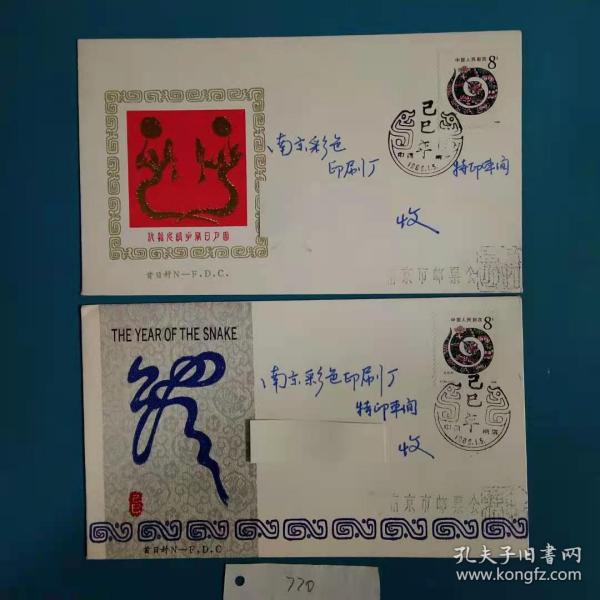 中国人民邮政 8分
己
巳
年
1989.1.5.
南京彩色
印刷厂
特印车间
收
首日封N—F.D.C.
南京市邮票公
THE YEAR OF THE SNAKE
中国人民邮政 8分
己
巳
年
1989.1.5.
南京彩色印刷厂
特印车间
收
南京市邮票公
首日封N—F.D.C
770
孔夫子旧书网
www.kongfz.com